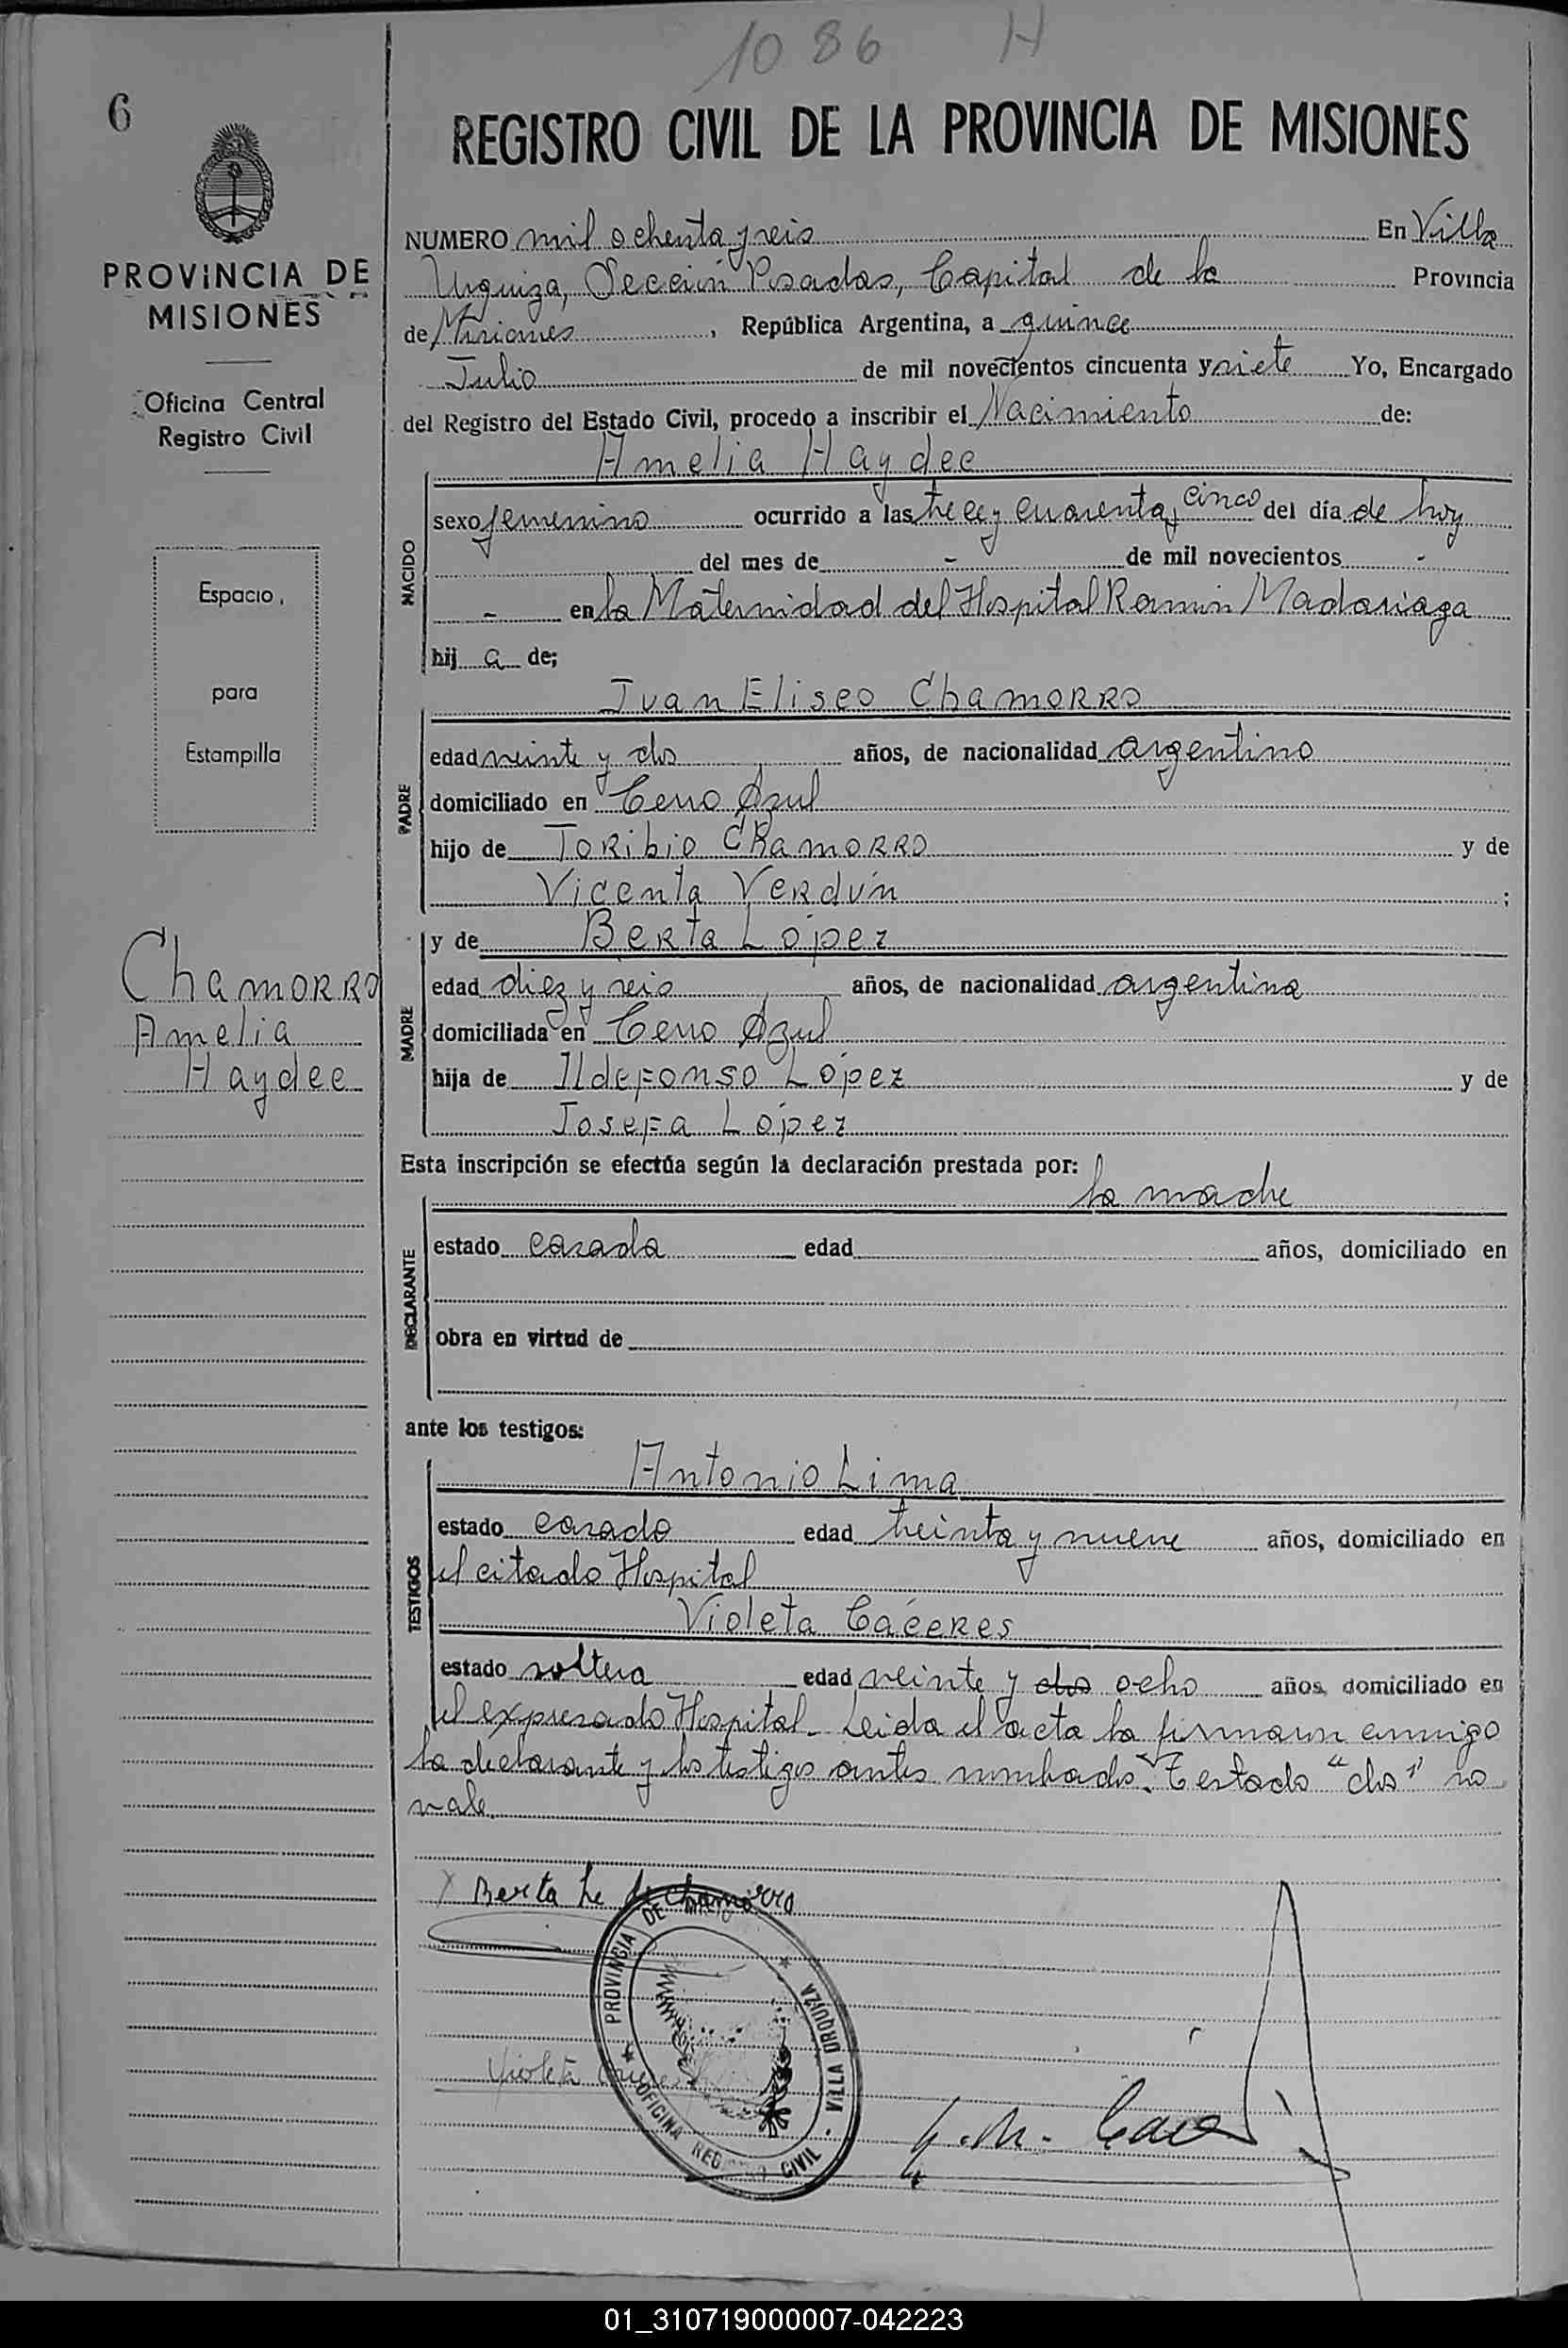 1086 H
6
REGISTRO CIVIL DE LA PROVINCIA DE MISIONES
PROVINCIA DE
MISIONES
Oficina Central
Registro Civil
Espacio
para
Estampilla
Chamorro
Amelia
Haydee
NUMERO mil ochenta y seis En Villa
Urquiza, Sección Posadas, Capital de la Provincia
de Misiones, República Argentina, a quince
Julio de mil novecientos cincuenta y siete Yo, Encargado
del Registro del Estado Civil, procedo a inscribir el Nacimiento de:
NACIDO
Amelia Haydee
sexo femenino ocurrido a las trece y cuarenta y cinco del día de hoy
del mes de - de mil novecientos -
- en la Maternidad del Hospital Ramón Madariaga
hij a de;
PADRE
Juan Eliseo Chamorro
edad veinte y dos años, de nacionalidad argentino
domiciliado en Cerro Azul
hijo de Toribio Chamorro y de
Vicenta Verdún ;
MADRE
y de Berta López
edad diez y seis años, de nacionalidad argentina
domiciliada en Cerro Azul
hija de Ildefonso López y de
Josefa López
Esta inscripción se efectúa según la declaración prestada por:
la madre
DECLARANTE
estado casada edad años, domiciliado en
obra en virtud de
ante los testigos:
TESTIGOS
Antonio Lima
estado casado edad treinta y nueve años, domiciliado en
el citado Hospital
Violeta Cáceres
estado soltera edad veinte y dos ocho años, domiciliado en
el expresado Hospital. Leida el acta la firmaron conmigo
la declarante y los testigos antes nombrados. Testado "dos" no
vale.
X Berta Le de Chamorro
PROVINCIA DE
VILLA URQUIZA
OFICINA REG CIVIL
Violeta
01_310719000007-042223